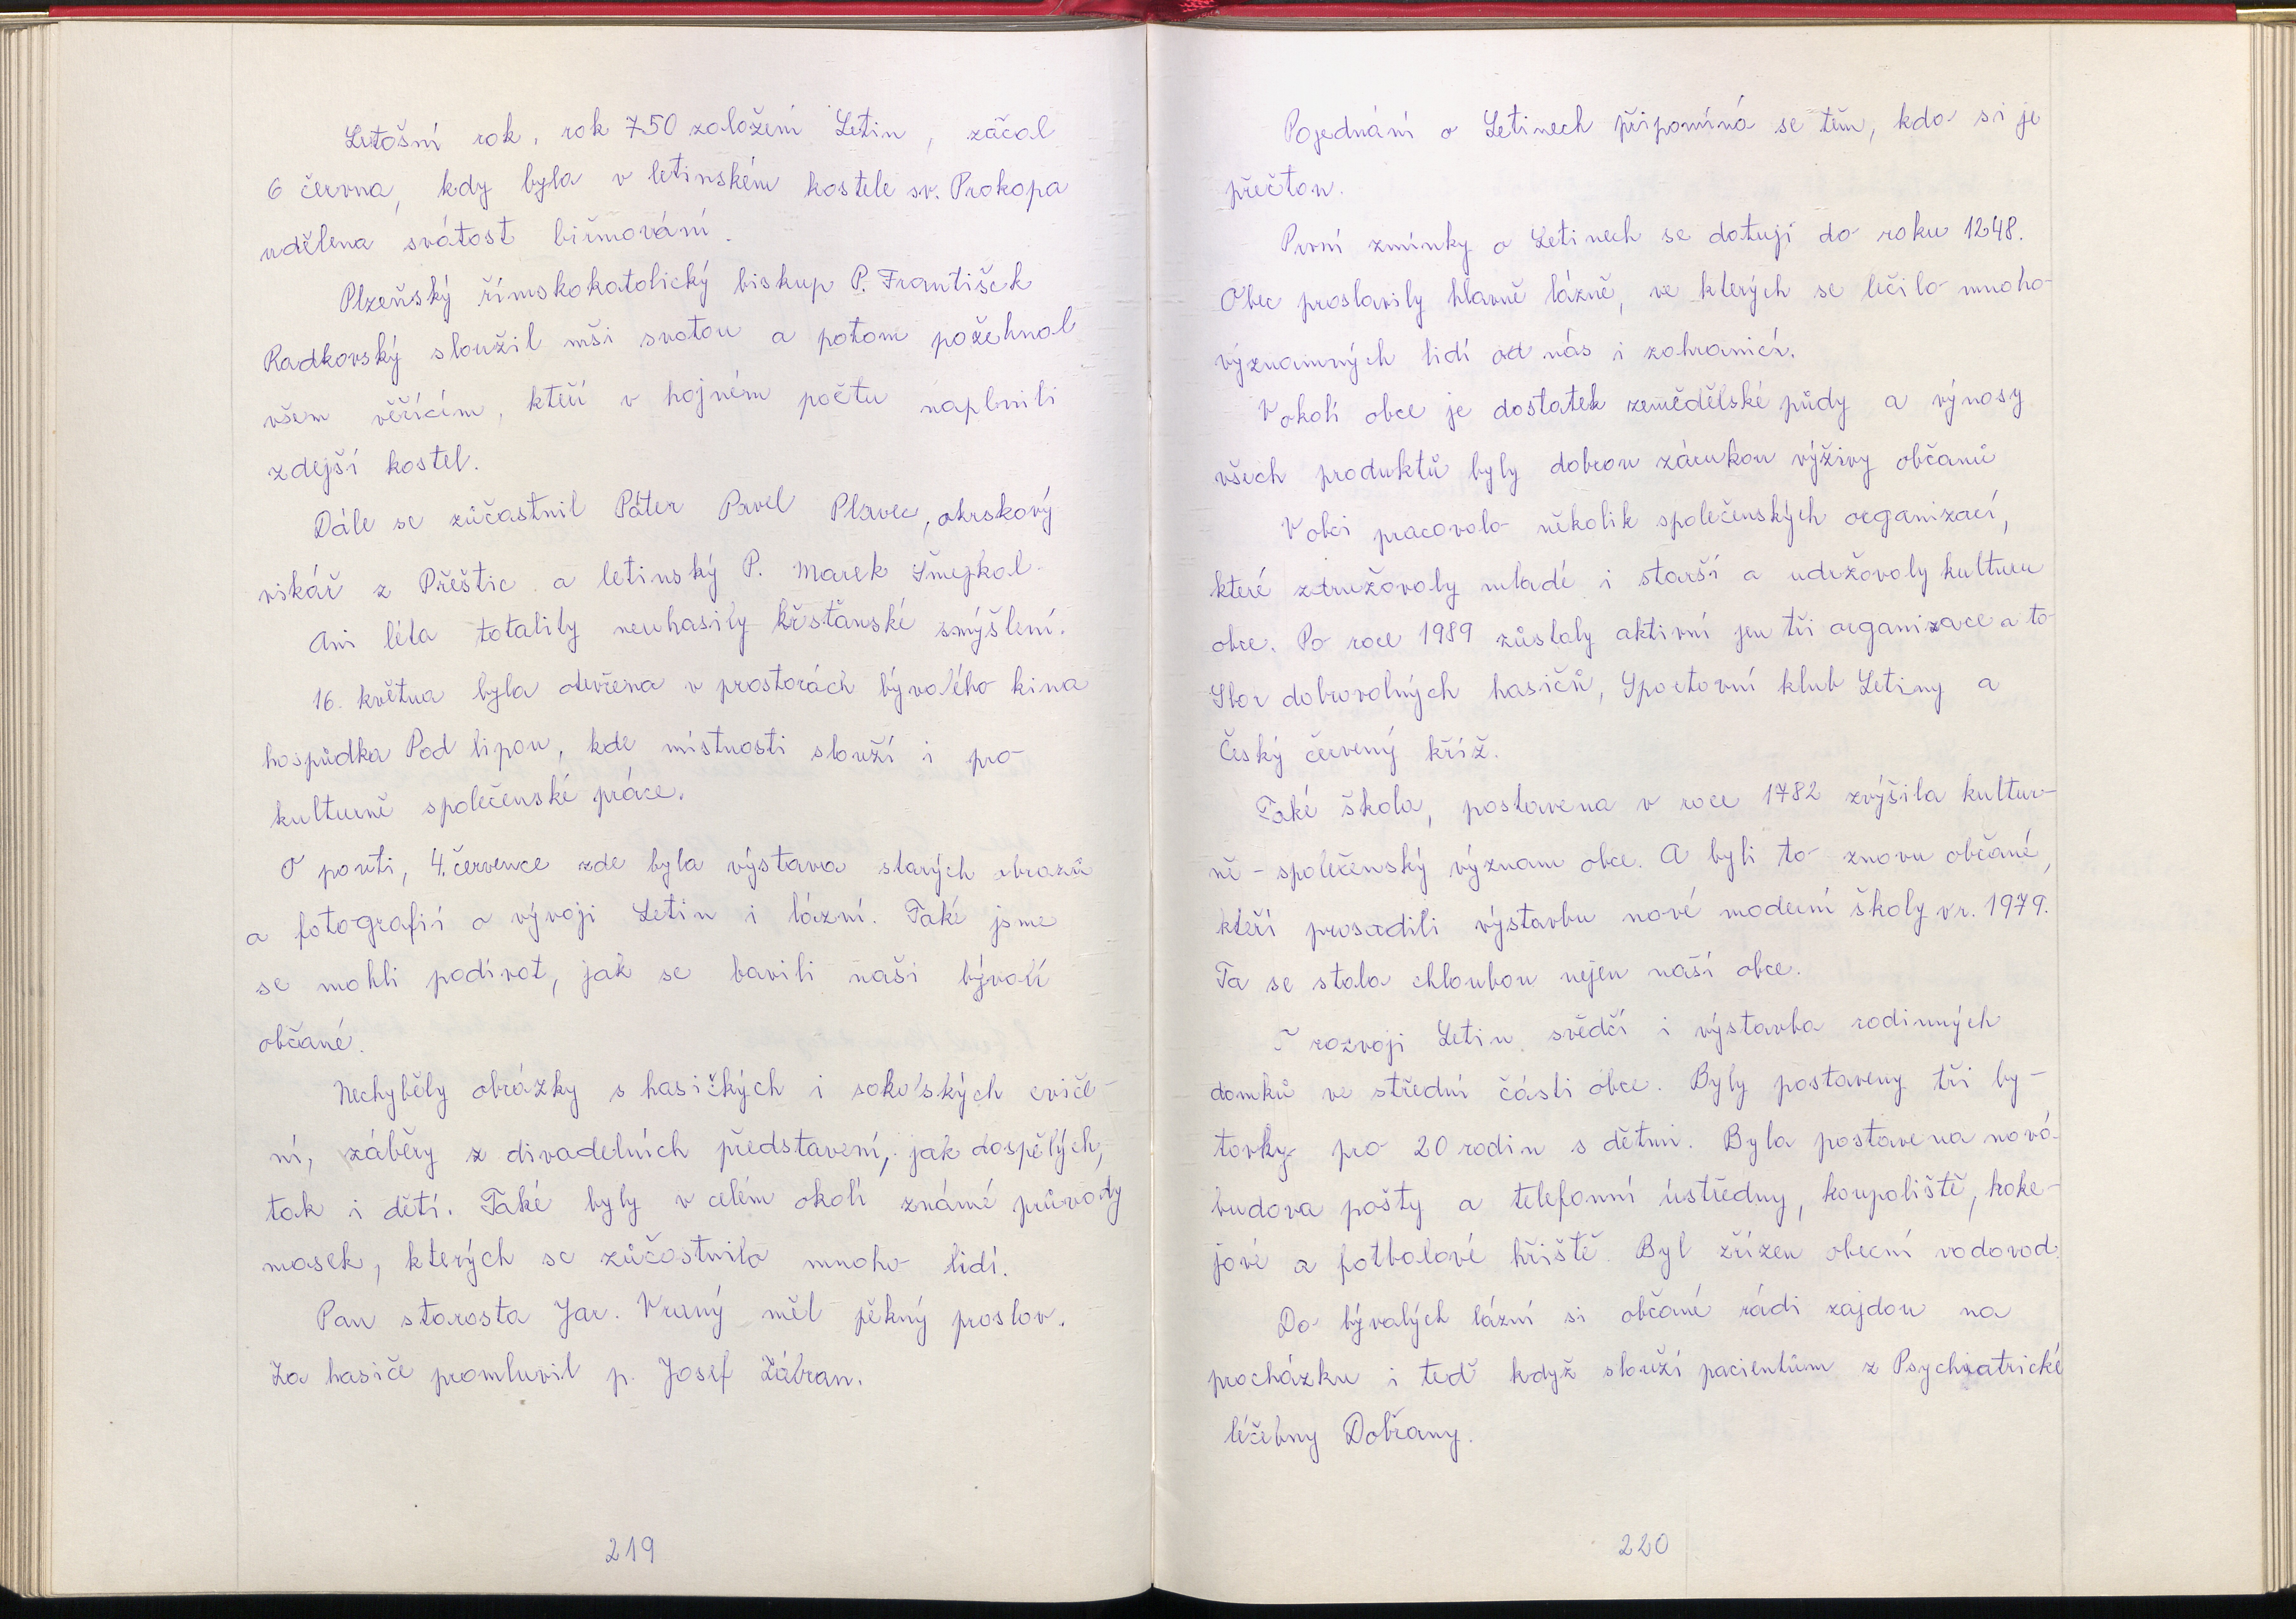 Letošní rok, rok 750 založení Letin, začal
6 června, kdy byla v letinském kostele sv. Prokopa
udělena svátost biřmování.
Plzeňský římskokatolický biskup P. František
Radkovský sloužil mši svatou a potom požehnal
všem věřícím, kteří v hojném počtu naplnili
zdejší kostel.
Dále se zúčastnil Páter Pavel Plavec, okrskový
vikář z Přeštic a letinský P. Marek Šmejkal.
Ani léta totality neuhasily křesťanské smýšlení.
16. května byla otevřena v prostorách bývalého kina
hospůdka Pod lipou, kde místnosti slouží i pro
kulturně společenské práce.
O pouti, 4. července zde byla výstava starých obrazů
a fotografií o vývoji Letin i lázní. Také jsme
se mohli podívat, jak se bavili naši bývalí
občané.
Nechyběly obrázky s hasičkých i sokolských cviče-
ní, záběry z divadelních představení, jak dospělých,
tak i dětí. Také byly v celém okolí známé průvody
masek, kterých se zůčastnilo mnoho lidí.
Pan starosta Jar. Vraný měl pěkný proslov.
Za hasiče promluvil p. Josef Zábran.
219
Pojednání o Letinech připomíná se těm, kdo si je
přečtou.
První zmínky o Letinech se datují do roku 1248.
Obec proslavily hlavně lázně, ve kterých se léčilo mnoho
významných lidí od nás i zahraničí.
V okolí obce je dostatek zemědělské půdy a výnosy
všech produktů byly dobrou zárukou výživy občanů
V obci pracovalo několik společenských organizací,
které združovaly mladé i starší a udržovaly kulturu
obce. Po roce 1989 zůstaly aktivní jen tři organizace a to
Sbor dobrovolných hasičů, Sportovní klub Letiny a
Český červený kříž.
Také škola, postavena v roce 1782 zvýšila kultur-
ně - společenský význam obce. A byli to znovu občané,
kteří prosadili výstavbu nové moderní školy v r. 1979.
Ta se stala chloubou nejen naší obce.
O rozvoji Letin svědčí i výstavba rodinných
domků ve střední části obce. Byly postaveny tři by-
tovky pro 20 rodin s dětmi. Byla postavena nová
budova pošty a telefonní ústředny, koupaliště, hoke-
jové a fotbalové hřiště. Byl zřízen obecní vodovod.
Do bývalých lázní si občané rádi zajdou na
procházku i teď když slouží pacientům z Psychiatrické
léčebny Dobřany.
220